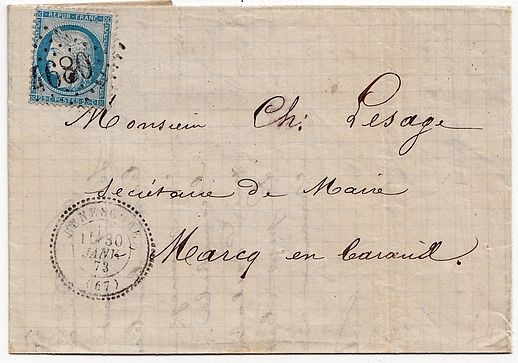 REPUB·FRANC
4680
25 C. POSTES 25 C.
Monsieur Ch: Lesage
Secrétaire de Mairie
Marcq en Barœul.
30
JANV
73
(67)